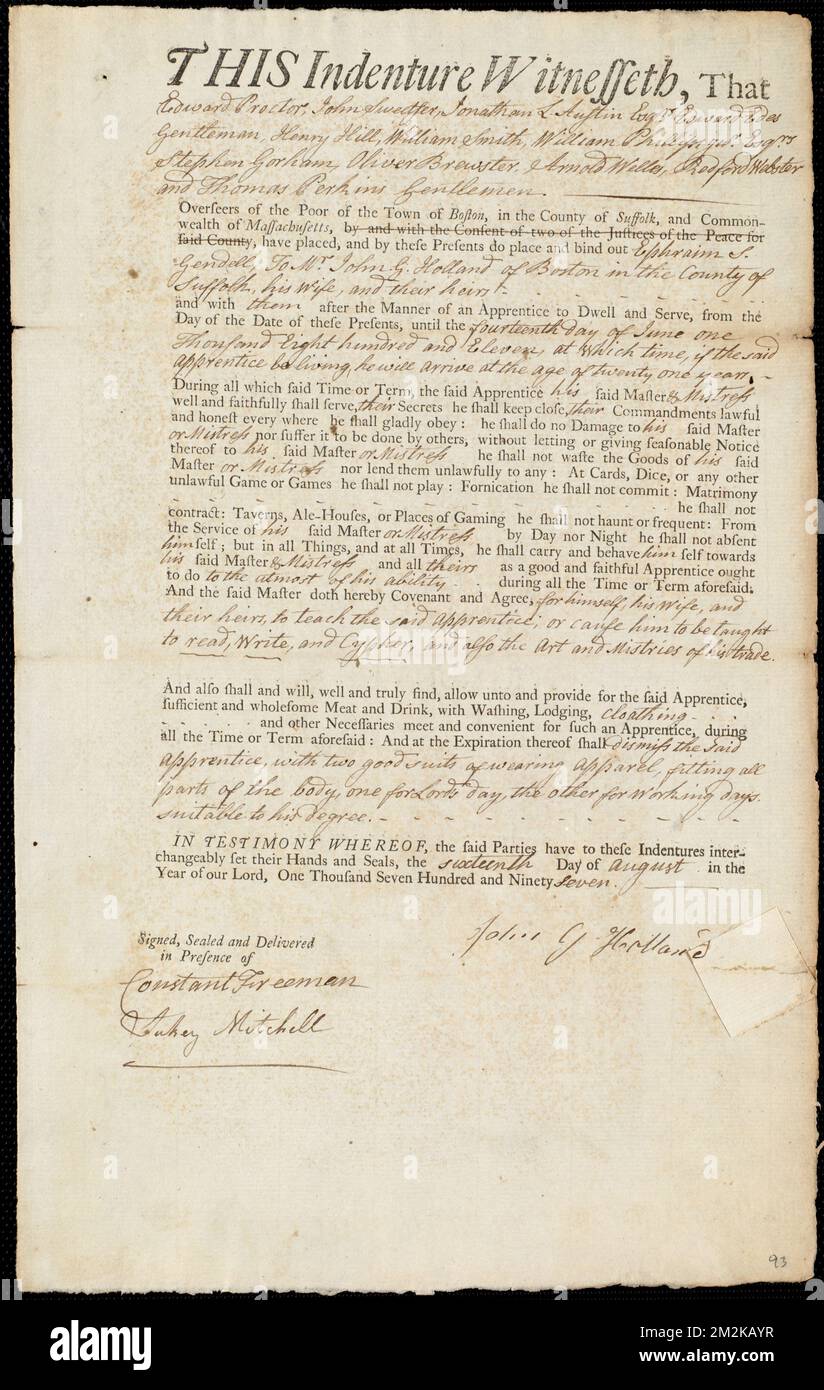 THIS Indenture Witnesseth, That
Edward Proctor, John Sweetser, Jonathan L. Austin Esqrs Edward Edes
Gentleman, Henry Hill, William Smith, William Phillips junr. Esqrs
Stephen Gorham, Oliver Brewster, Arnold Welles, Redford Webster
and Thomas Perkins Gentlemen.
Overseers of the Poor of the Town of Boston, in the County of Suffolk, and Common-
wealth of Massachusetts, by and with the Consent of two of the Justices of the Peace for
said County, have placed, and by these Presents do place and bind out Ephraim S.
Gendell, To Mr. John G. Holland of Boston in the County of
Suffolk, his Wife, and their heirs
and with them after the Manner of an Apprentice to Dwell and Serve, from the
Day of the Date of these Presents, until the fourteenth day of June one
Thousand Eight hundred and Eleven, at which time, if the said
apprentice be living, he will arrive at the age of twenty one years.
During all which said Time or Term, the said Apprentice his said Master & Mistress
well and faithfully shall serve, their Secrets he shall keep close, their Commandments lawful
and honest every where he shall gladly obey: he shall do no Damage to his said Master
or Mistress nor suffer it to be done by others, without letting or giving seasonable Notice
thereof to his said Master or Mistress he shall not waste the Goods of his said
Master or Mistress nor lend them unlawfully to any: At Cards, Dice, or any other
unlawful Game or Games he shall not play: Fornication he shall not commit: Matrimony
he shall not
contract: Taverns, Ale-Houses, or Places of Gaming he shall not haunt or frequent: From
the Service of his said Master or Mistress by Day nor Night he shall not absent
himself; but in all Things, and at all Times, he shall carry and behave him self towards
his said Master & Mistress and all theirs as a good and faithful Apprentice ought
to do to the utmost of his ability during all the Time or Term aforesaid.
And the said Master doth hereby Covenant and Agree, for himself, his Wife, and
their heirs, to teach the said apprentice, or cause him to be taught
to read, Write, and Cypher, and also the Art and Mistries of his trade.
And also shall and will, well and truly find, allow unto and provide for the said Apprentice,
sufficient and wholesome Meat and Drink, with Washing, Lodging, cloathing
and other Necessaries meet and convenient for such an Apprentice, during
all the Time or Term aforesaid: And at the Expiration thereof shall dismiss the said
apprentice, with two good suits of wearing apparel, fitting all
parts of the body, one for Lords day, the other for working days.
suitable to his degree.
IN TESTIMONY WHEREOF, the said Parties have to these Indentures inter-
changeably set their Hands and Seals, the sixteenth Day of august in the
Year of our Lord, One Thousand Seven Hundred and Ninety seven.
Signed, Sealed and Delivered
in Presence of
John G Holland
Constant Freeman
Mitchell
93
alamy
Image ID: 2M2KAYR
www.alamy.com